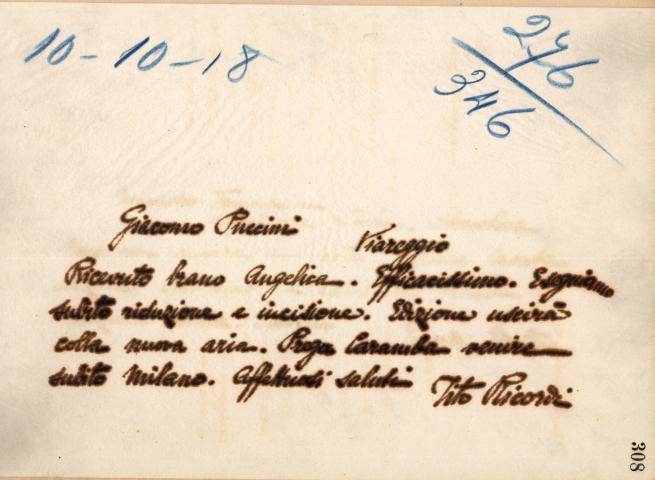 10-10-18
276
346
Giacomo Puccini
Viareggio
Ricevuto brano Angelica. Efficacissimo. Eseguiamo
subito riduzione e incisione. Edizione uscirà
colla nuova aria. Prega Caramba venire
subito Milano. Affettuosi saluti
Tito Ricordi
308